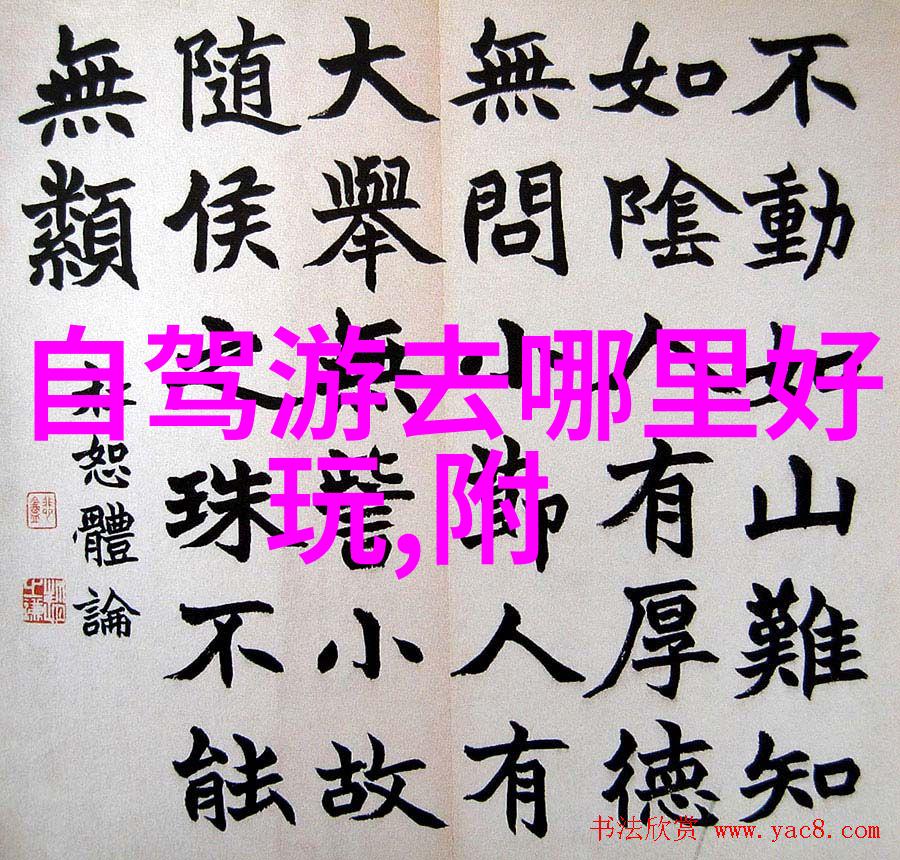 不動如山難知
如陰人有厚德
無問小節人有
大舉無訾小故
隨侯之珠不能
無纇
恕體論
自驾游去哪里好
玩,附
书法欣赏 www.yac8.com